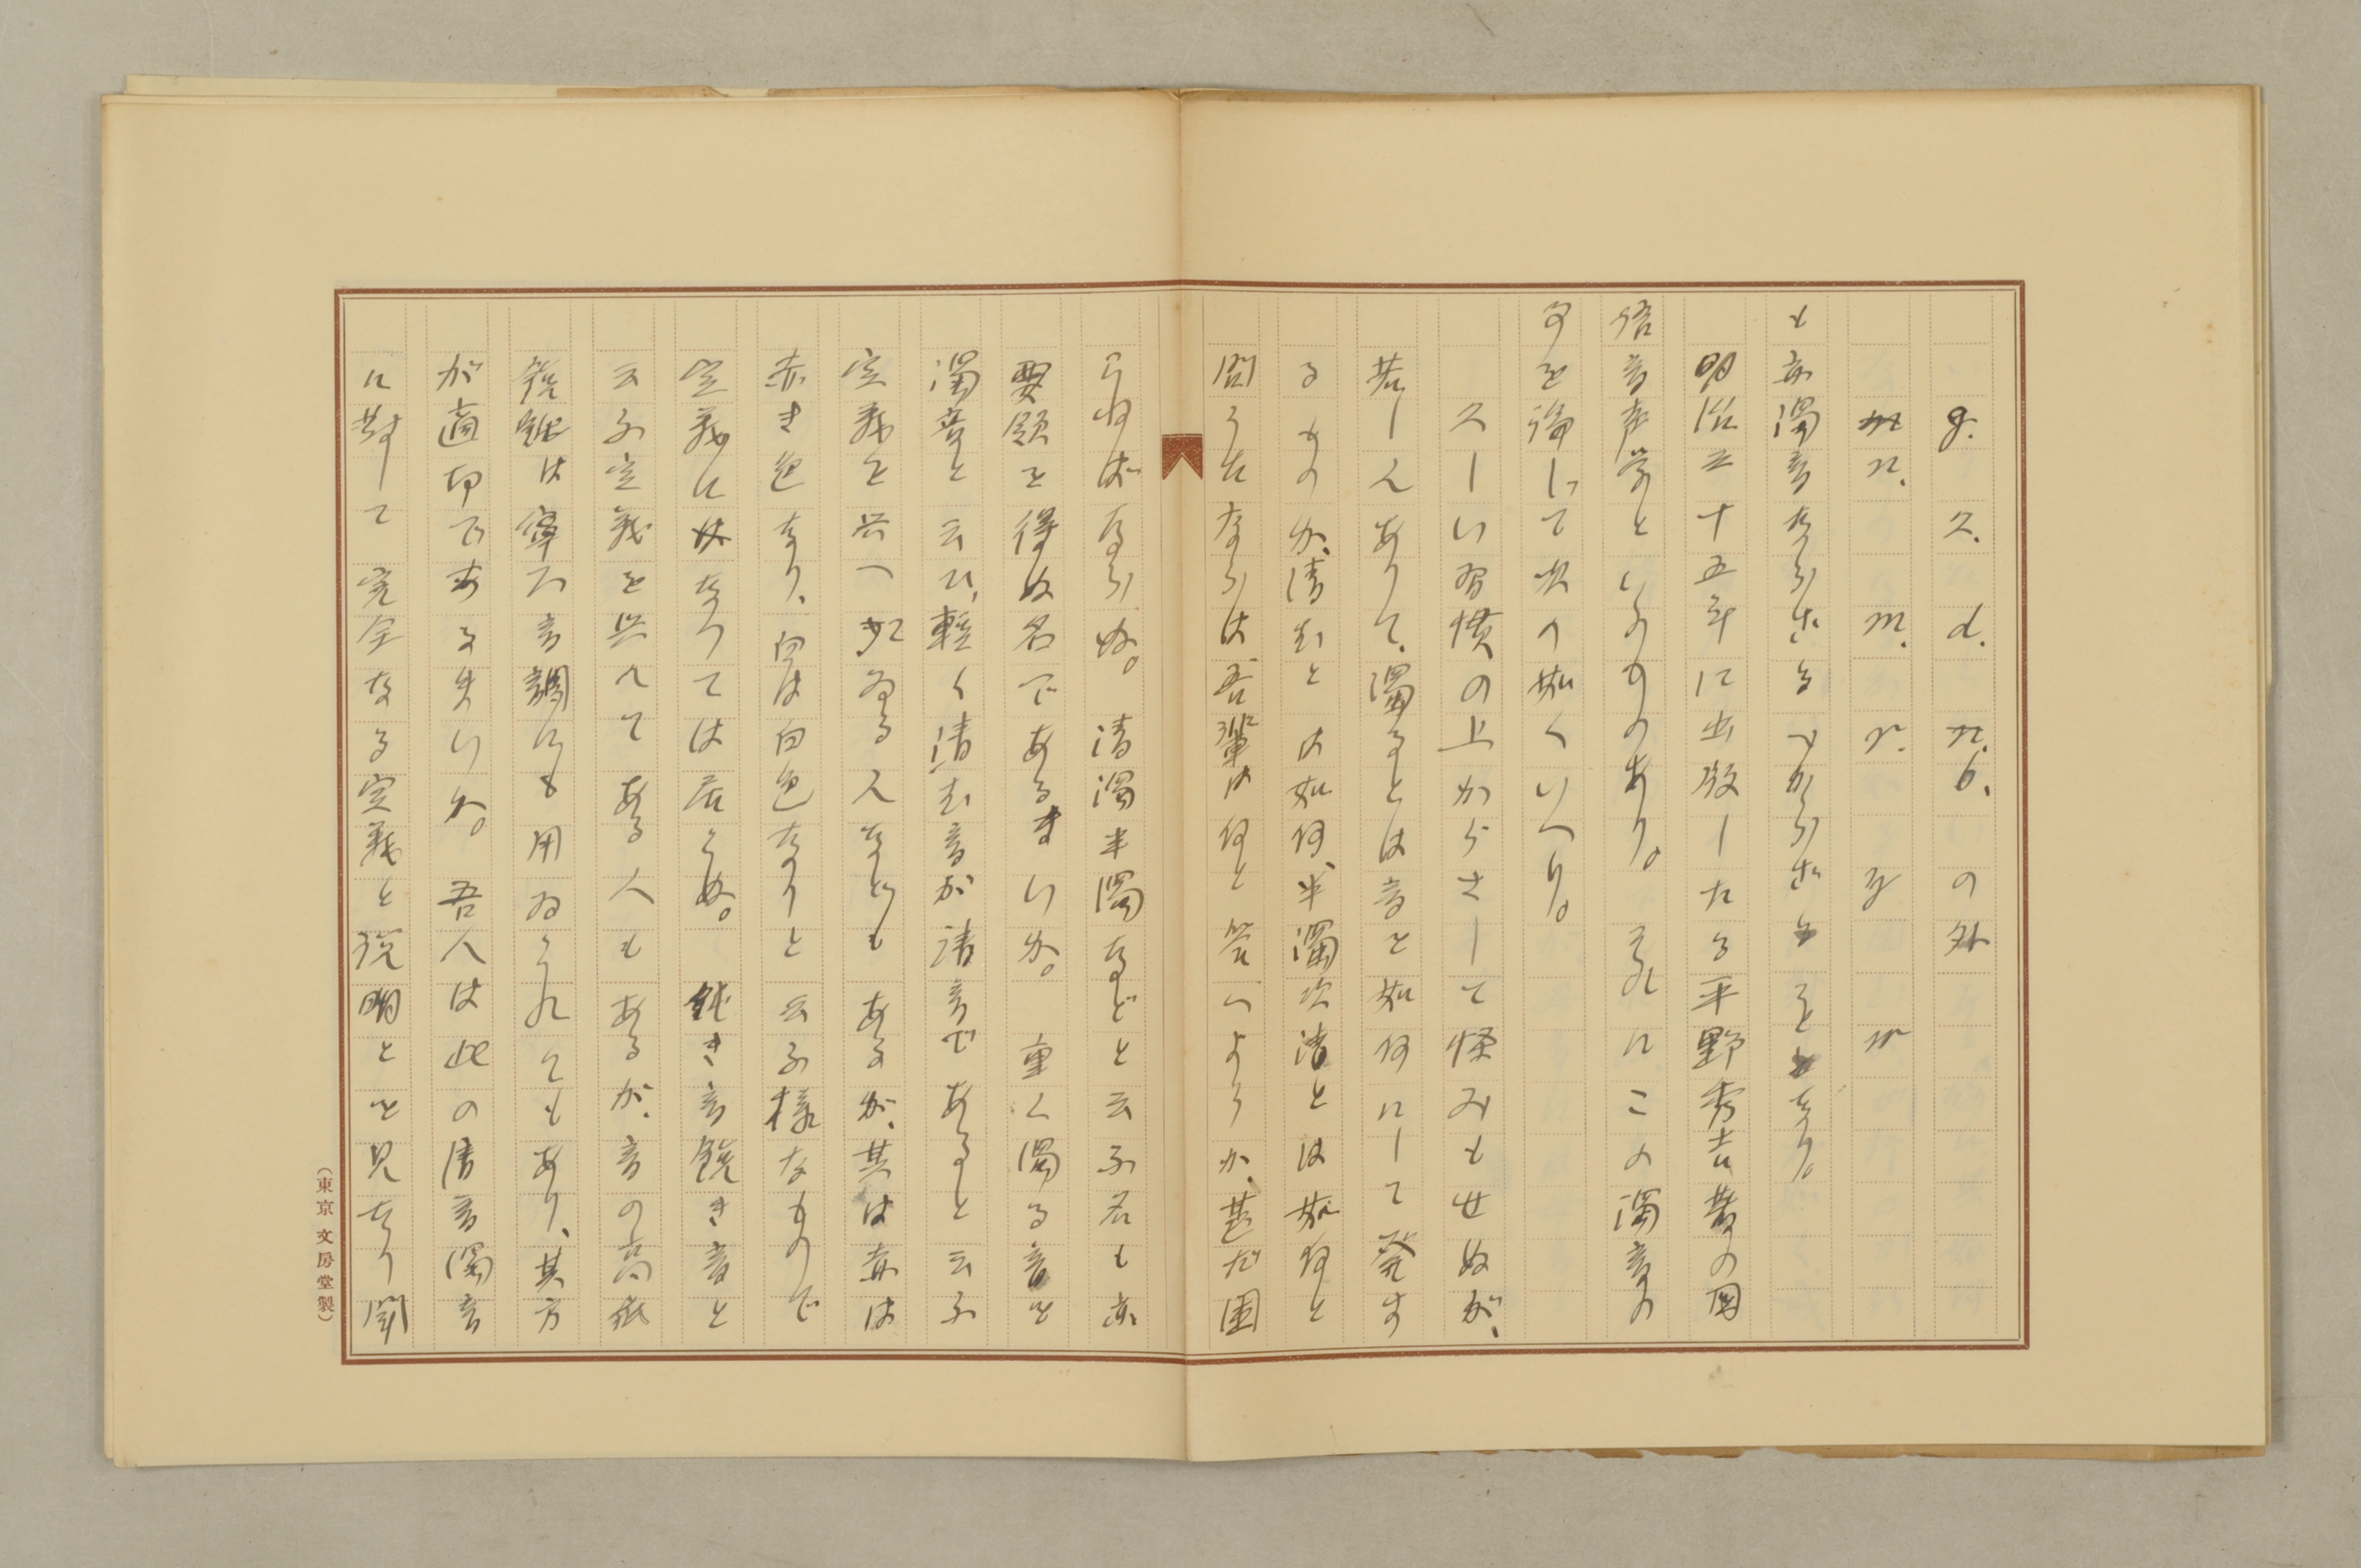 g. z. d. n. b. の外
n. m. r. y w
も亦濁音ならざるべからざるをとなり。
明治三十五年に出版したる平野秀吉著の国
語音声学といふものあり。それにこの濁音の
事を論じて次の如くいへり。
久しい習慣の上からさして怪みもせぬが、
若し人ありて、濁るとは音を如何にして発す
るものか、清むとは如何、半濁次清とは如何と
問うたならば吾輩は何と答へようか、甚だ困
らねばならぬ。清濁半濁などと云ふ名も亦
要領を得ぬ名であるまいか。重く濁る音を
濁音と云ひ、軽く清む音が清音であると云ふ
定義を与へ如ゐる人なども あるが、其は赤は
赤き色なり、白は白色なりと云ふ様なもので
定義にはなつては居らぬ。鈍き音鋭き音と
云ふ定義を与へてある人もあるが、音の高低
鋭鈍は寧ろ音調にも用ゐられてもあり、其方
が適切であるまいか。吾人は此の清音濁音
に対して完全なる定義と説明とを見たり聞
（東京 文房堂製）